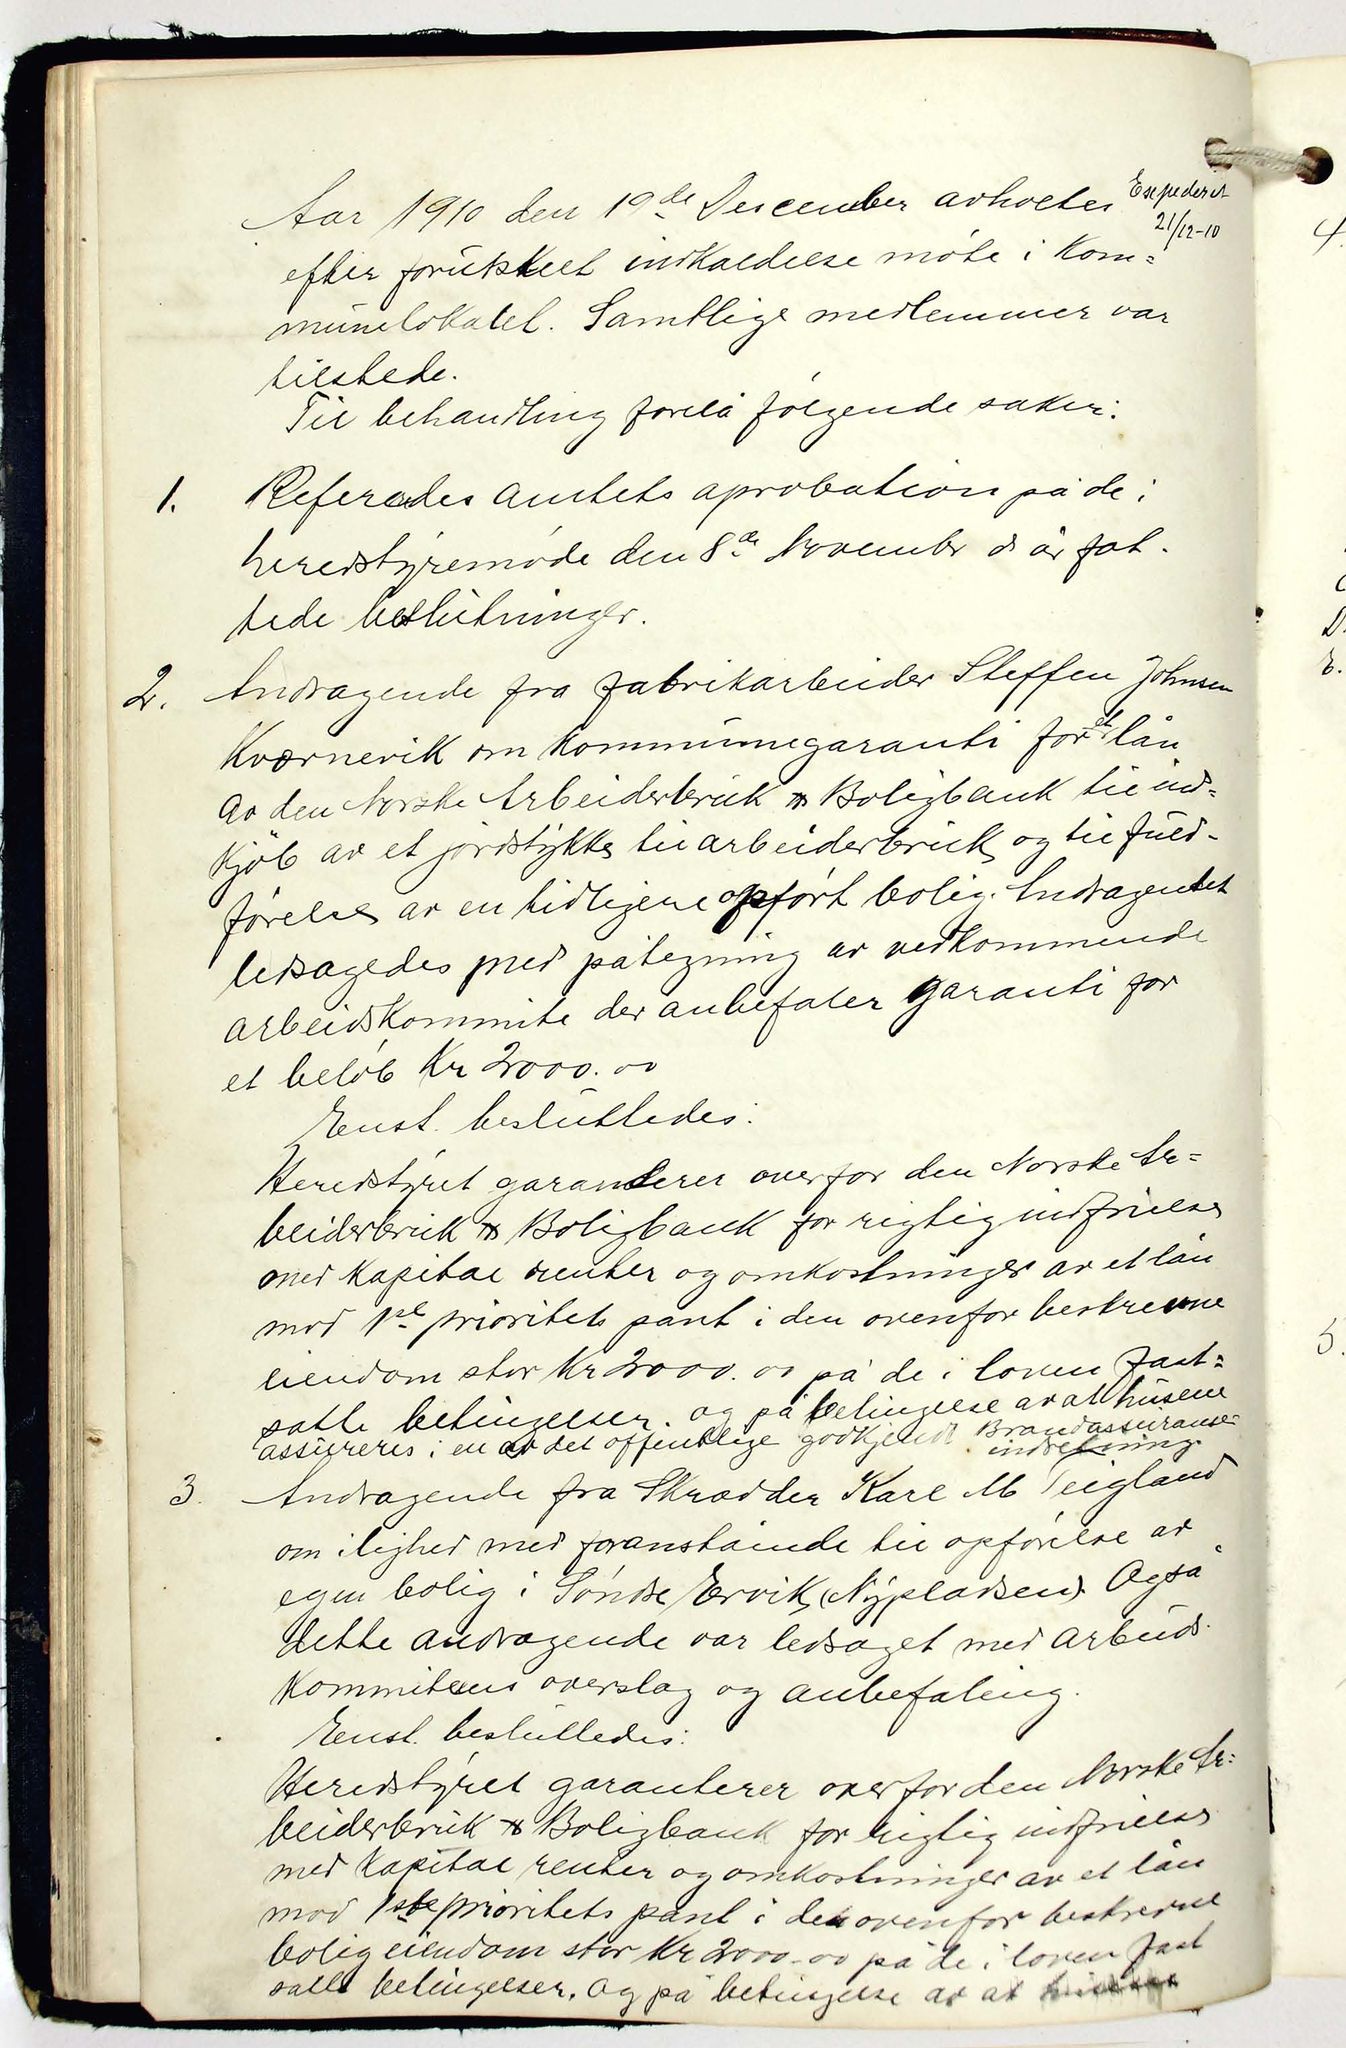 Aar 1910 den 19de Descember avholtes
Expederet
21/12-10
efter forutskket indkaldelse møte i Kom=
munelokalet. Samtlige medlemmer var
tilstede.
Til behandling forelå følgende saker:
1. Referedes amtets aprobation på de i
heredstyremøde den 8de November d. år fat-
tede beslutninger.
2. Andragende fra fabrikarbeider Steffen Johnsen
Kværnevik om kommunegaranti for et lån
av den Norske Arbeiderbruk & Boligbank til ind=
kjøb av et jordstykke til arbeiderbruk og til fuld-
førelse av en tidligere opført bolig. Andragendet
ledsagedes med påtegning av vedkommende
arbeidskommite der anbefaler garanti for
et beløb Kr 2000.00
Enst. besluttedes:
Heredstyret garanterer overfor den Norske Ar=
beiderbruk & Boligbank for rigtig indfrielse
med kapital renter og omkostninger av et lån
mod 1ste prioritets pant i den ovenfor beskrevne
eiendom stor Kr 2000.00 på de i loven fast=
satte betingelser. og på betingelse av at husene
assureres i en av det offentlige godkjendt Brandassuranse
indretning
3. Andragende fra Skrædder Karl M Teigland
om ilighed med foranstående til opførelse av
egen bolig i Søndre Ervik (Nypladsen). Også
dette andragende var ledsaget med arbeids-
kommiteens overslag og anbefaling.
Enst. besluttedes:
Heredstyret garanterer overfor den Norske Ar=
beiderbruk & Boligbank for rigtig indfrielse
med kapital renter og omkostninger av et lån
mod 1ste prioritets pant i den ovenfor beskrevne
bolig eiendom stor Kr 2000.00 på de i loven fast
satte betingelser. Og på betingelse av at
4.
D.
E.
5.